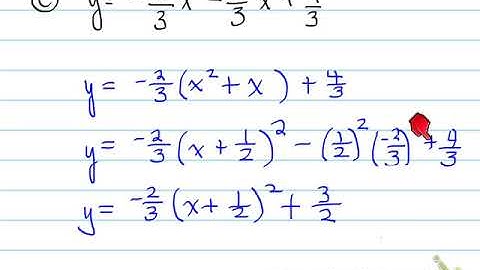 ⓒ y = -2/3 x² - 2/3 x + 4/3
y = -2/3 (x² + x ) + 4/3
y = -2/3 (x + 1/2)² - (1/2)² (-2/3) + 4/3
y = -2/3 (x + 1/2)² + 3/2